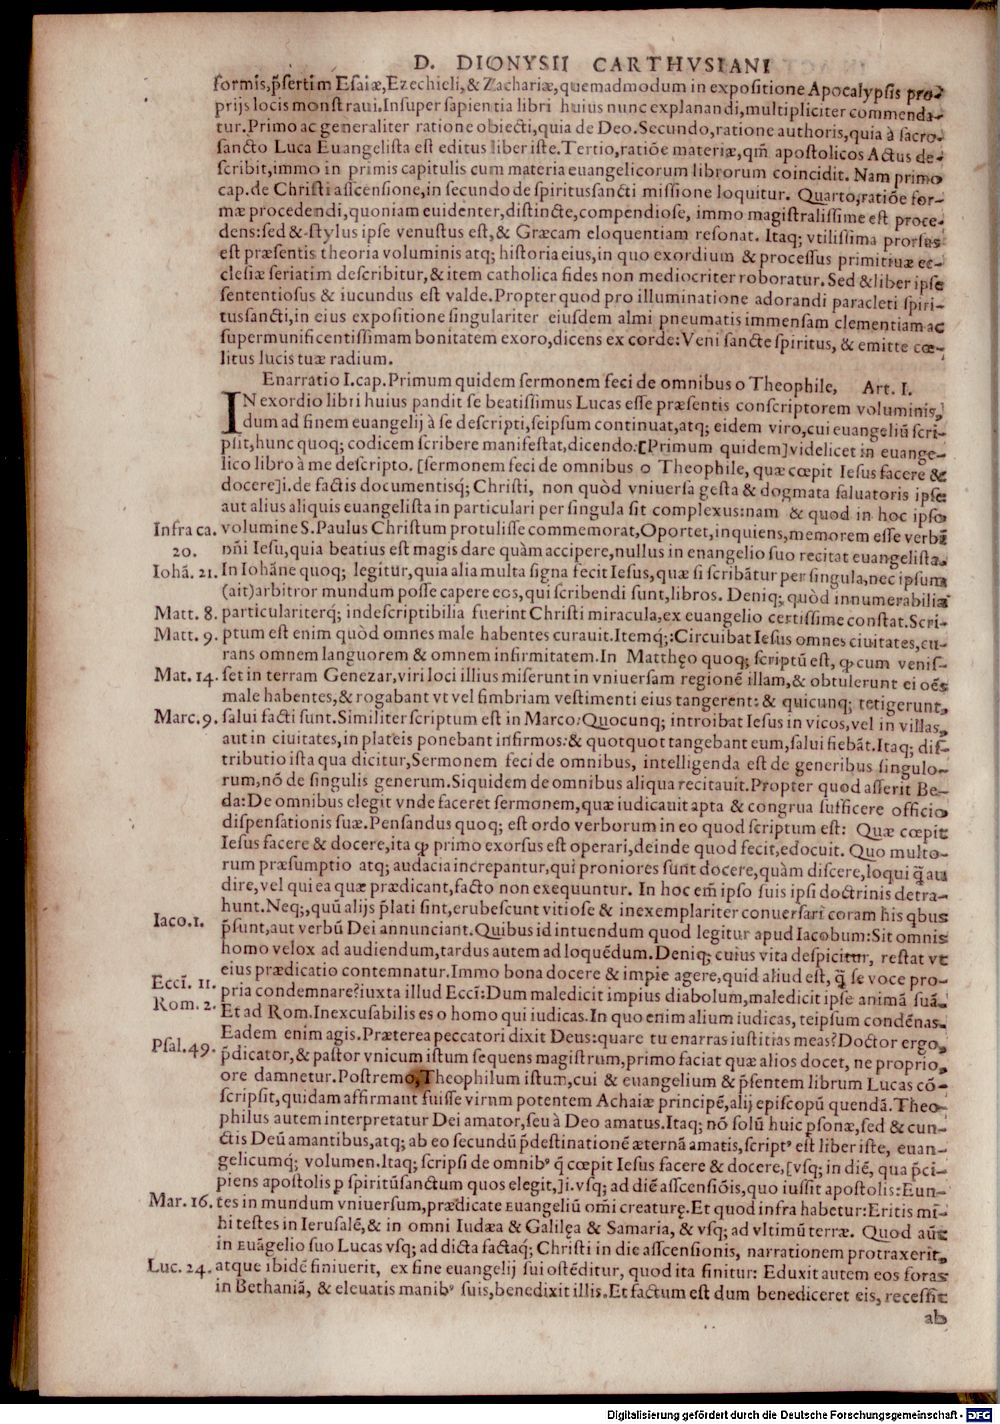 D. DIONYSII CARTHVSIANI
formis, p̃sertim Esaiæ, Ezechieli, & Zachariæ, quemadmodum in expositione Apocalypsis pro-
prijs locis monstraui. Insuper sapientia libri huius nunc explanandi, multipliciter commenda-
tur. Primo ac generaliter ratione obiecti, quia de Deo. Secundo, ratione authoris, quia à sacro-
sancto Luca Euangelista est editus liber iste. Tertio, ratiõe materiæ, qm̃ apostolicos Actus de-
scribit, immo in primis capitulis cum materia euangelicorum librorum coincidit. Nam primo
cap. de Christi ascensione, in secundo de spiritussancti missione loquitur. Quarto, ratiõe for-
mæ procedendi, quoniam euidenter, distincte, compendiose, immo magistralissime est proce-
dens: sed & stylus ipse venustus est, & Græcam eloquentiam resonat. Itaq; vtilissima prorsus
est præsentis theoria voluminis atq; historia eius, in quo exordium & processus primitiuæ ec-
clesiæ seriatim describitur, & item catholica fides non mediocriter roboratur. Sed & liber ipse
sententiosus & iucundus est valde. Propter quod pro illuminatione adorandi paracleti spiri-
tussancti, in eius expositione singulariter eiusdem almi pneumatis immensam clementiam ac
supermunificentissimam bonitatem exoro, dicens ex corde: Veni sancte spiritus, & emitte cœ-
litus lucis tuæ radium.
Enarratio I. cap. Primum quidem sermonem feci de omnibus o Theophile, Art. I.
IN exordio libri huius pandit se beatissimus Lucas esse præsentis conscriptorem voluminis,
dum ad finem euangelij à se descripti, seipsum continuat, atq; eidem viro, cui euangeliũ scri-
psit, hunc quoq; codicem scribere manifestat, dicendo: [Primum quidem] videlicet in euange-
lico libro à me descripto. [sermonem feci de omnibus o Theophile, quæ cœpit Iesus facere &
docere] i. de factis documentisq́; Christi, non quòd vniuersa gesta & dogmata saluatoris ipse
aut alius aliquis euangelista in particulari per singula sit complexus: nam & quod in hoc ipso
Infra ca. volumine S. Paulus Christum protulisse commemorat, Oportet, inquiens, memorem esse verbi
20. ñni Iesu, quia beatius est magis dare quàm accipere, nullus in enangelio suo recitat euangelista.
Iohã. 21. In Iohãne quoq; legitur, quia alia multa signa fecit Iesus, quæ si scribãtur per singula, nec ipsum
(ait) arbitror mundum posse capere eos, qui scribendi sunt, libros. Deniq; quòd innumerabilia
Matt. 8. particulariterq́; indescriptibilia fuerint Christi miracula, ex euangelio certissime constat. Scri-
Matt. 9. ptum est enim quòd omnes male habentes curauit. Itemq́;: Circuibat Iesus omnes ciuitates, cu-
rans omnem languorem & omnem infirmitatem. In Matthęo quoq; scriptũ est, ꝙ cum venis-
Mat. 14. set in terram Genezar, viri loci illius miserunt in vniuersam regionẽ illam, & obtulerunt ei oẽs
male habentes, & rogabant vt vel fimbriam vestimenti eius tangerent: & quicunq; tetigerunt,
Marc. 9. salui facti sunt. Similiter scriptum est in Marco: Quocunq; introibat Iesus in vicos, vel in villas,
aut in ciuitates, in plateis ponebant infirmos: & quotquot tangebant eum, salui fiebãt. Itaq; dis-
tributio ista qua dicitur, Sermonem feci de omnibus, intelligenda est de generibus singulo-
rum, nõ de singulis generum. Siquidem de omnibus aliqua recitauit. Propter quod asserit Be-
da: De omnibus elegit vnde faceret sermonem, quæ iudicauit apta & congrua sufficere officio
dispensationis suæ. Pensandus quoq; est ordo verborum in eo quod scriptum est: Quæ cœpit
Iesus facere & docere, ita ꝙ primo exorsus est operari, deinde quod fecit, edocuit. Quo multo-
rum præsumptio atq; audacia increpantur, qui proniores sunt docere, quàm discere, loqui q̃ au
dire, vel qui ea quæ prædicant, facto non exequuntur. In hoc em̃ ipso suis ipsi doctrinis detra-
hunt. Neq;, quũ alijs p̃lati sint, erubescunt vitiose & inexemplariter conuersari coram his qbus
Iaco. 1. p̃sunt, aut verbũ Dei annunciant. Quibus id intuendum quod legitur apud Iacobum: Sit omnis
homo velox ad audiendum, tardus autem ad loquẽdum. Deniq; cuius vita despicitur, restat vt
eius prædicatio contemnatur. Immo bona docere & impie agere, quid aliud est, q̃ se voce pro-
Eccĩ. 11. pria condemnare? iuxta illud Eccĩ: Dum maledicit impius diabolum, maledicit ipse animã suã.
Rom. 2. Et ad Rom. Inexcusabilis es o homo qui iudicas. In quo enim alium iudicas, teipsum condẽnas.
Eadem enim agis. Præterea peccatori dixit Deus: quare tu enarras iustitias meas? Doctor ergo,
Psal. 49. p̃dicator, & pastor vnicum istum sequens magistrum, primo faciat quæ alios docet, ne proprio
ore damnetur. Postremo, Theophilum istum, cui & euangelium & p̃sentem librum Lucas cõ-
scripsit, quidam affirmant fuisse virum potentem Achaiæ principẽ, alij episcopũ quendã. Theo-
philus autem interpretatur Dei amator, seu à Deo amatus. Itaq; nõ solũ huic p̱sonæ, sed & cun-
ctis Deũ amantibus, atq; ab eo secundũ p̃destinationẽ æternã amatis, script⁹ est liber iste, euan-
gelicumq́; volumen. Itaq; scripsi de omnib⁹ q̃ cœpit Iesus facere & docere, [vsq; in diẽ, qua p̃ci-
piens apostolis p̱ spiritũsanctum quos elegit,] i. vsq; ad diẽ ascensiõis, quo iussit apostolis: Eun-
Mar. 16. tes in mundum vniuersum, prædicate euangeliũ om̃i creaturę. Et quod infra habetur: Eritis mi-
hi testes in Ierusalẽ, & in omni Iudæa & Galilęa & Samaria, & vsq; ad vltimũ terræ. Quod aũt
in euãgelio suo Lucas vsq; ad dicta factaq́; Christi in die ascensionis, narrationem protraxerit,
Luc. 24. atque ibidẽ finiuerit, ex fine euangelij sui ostẽditur, quod ita finitur: Eduxit autem eos foras
in Bethaniã, & eleuatis manib⁹ suis, benedixit illis. Et factum est dum benediceret eis, recessit
ab
Digitalisierung gefördert durch die Deutsche Forschungsgemeinschaft - DFG